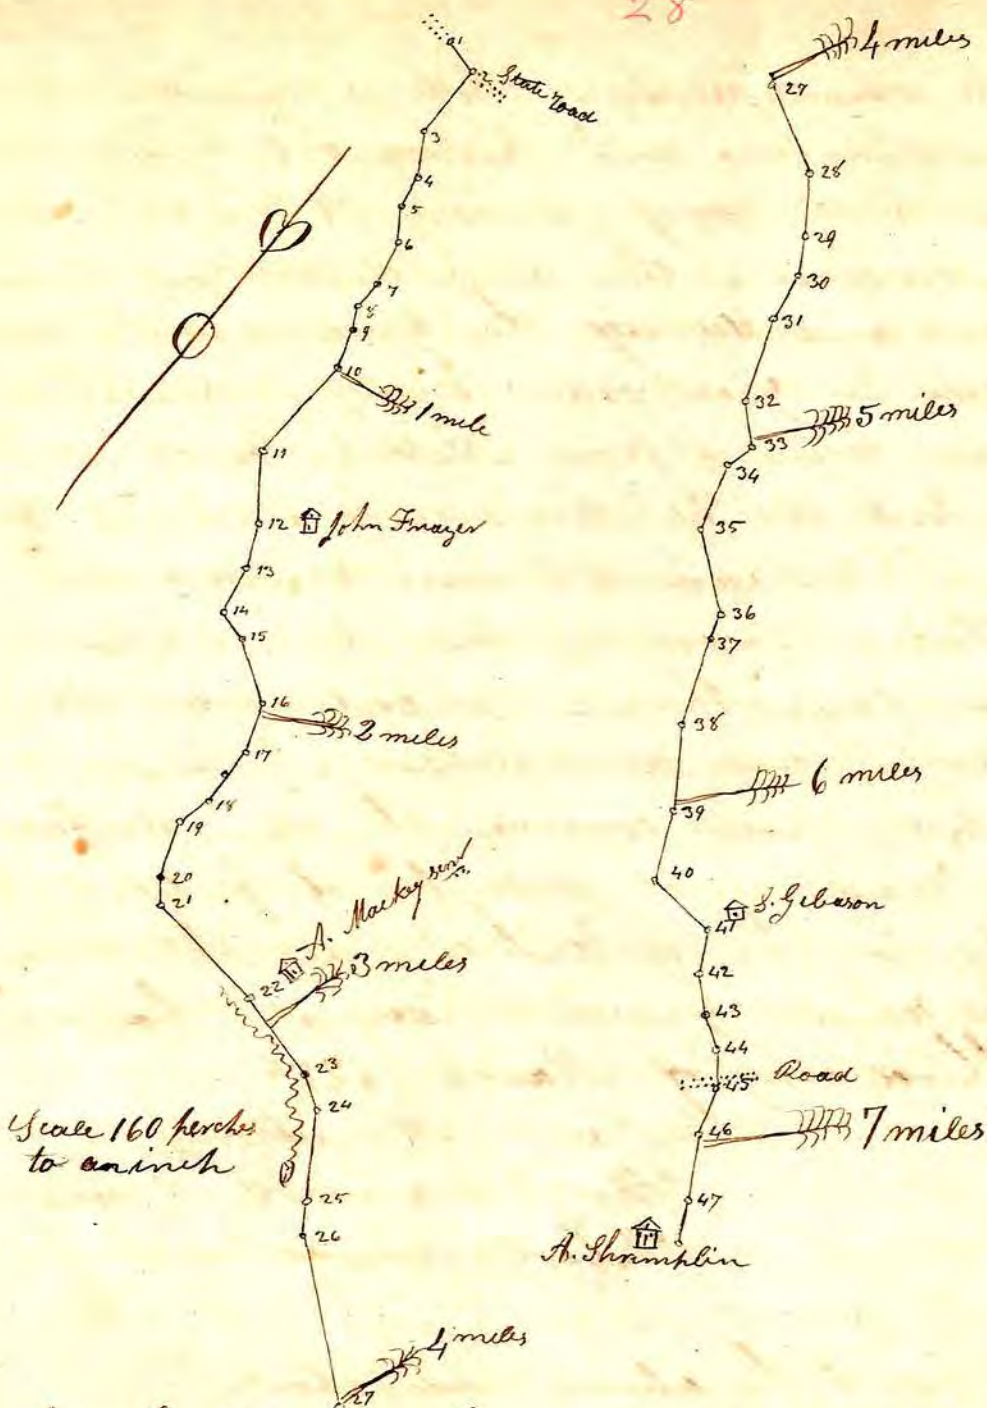 28
1
2 State road
3
4
5
6
7
8
9
10
1 mile
11
12 John Frazer
13
14
15
16
2 miles
17
18
19
20
21
A. Mackey senr
22
3 miles
23
24
Scale 160 perches
to an inch
25
26
4 miles
27
4 miles
27
28
29
30
31
32
5 miles
33
34
35
36
37
38
6 miles
39
40
S. Gibason
41
42
43
44
Road
45
46
7 miles
47
A. Shrimplin